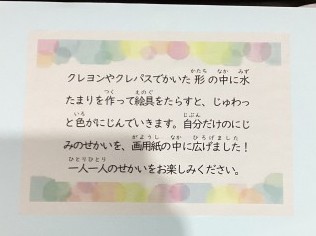 クレヨンやクレパスでかいた形の中に水
たまりを作って絵具をたらすと、じゅわっ
と色がにじんでいきます。自分だけのにじ
みのせかいを、画用紙の中に広げました！
一人一人のせかいをお楽しみください。